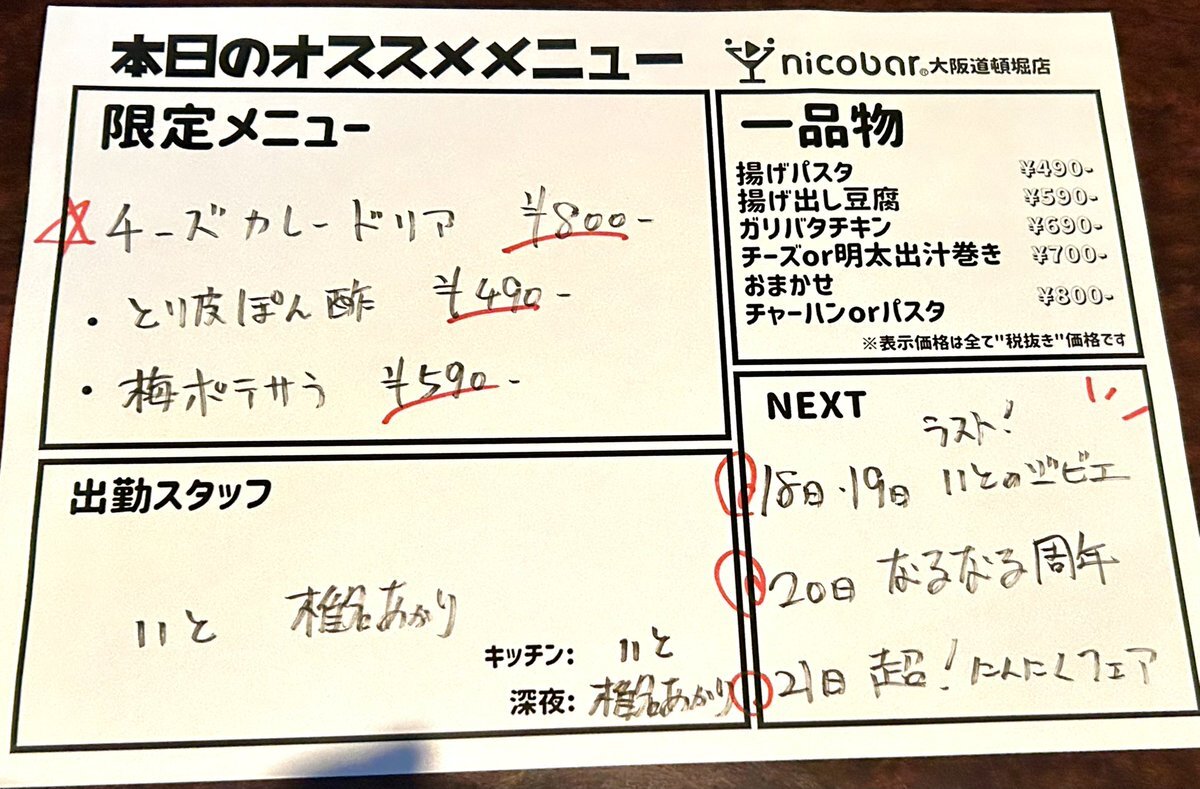 本日のオススメメニュー
nicobar® 大阪道頓堀店
限定メニュー
☆チーズカレードリア ¥800-
・とり皮ぽん酢 ¥490-
・梅ポテサラ ¥590-
一品物
揚げパスタ ¥490-
揚げ出し豆腐 ¥590-
ガリバタチキン ¥690-
チーズor明太出汁巻き ¥700-
おまかせ
チャーハンorパスタ ¥800-
※表示価格は全て"税抜き"価格です
出勤スタッフ
いと 椎名あかり
キッチン: いと
深夜: 椎名あかり
NEXT
ラスト!
18日・19日 いとのジビエ
20日 なるなる周年
21日 超!にんにくフェア